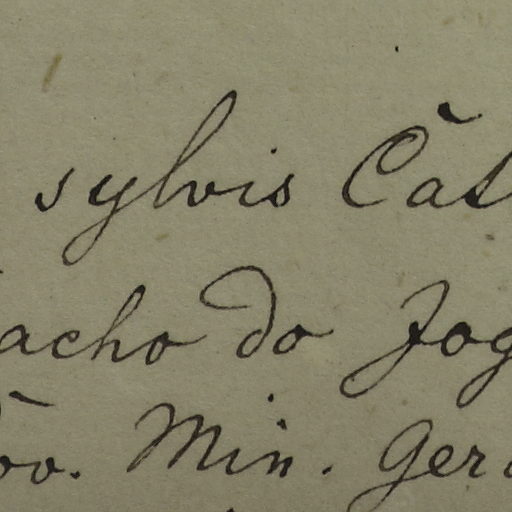 sylvis Cat
acho do Jog
ov. Min. Ger